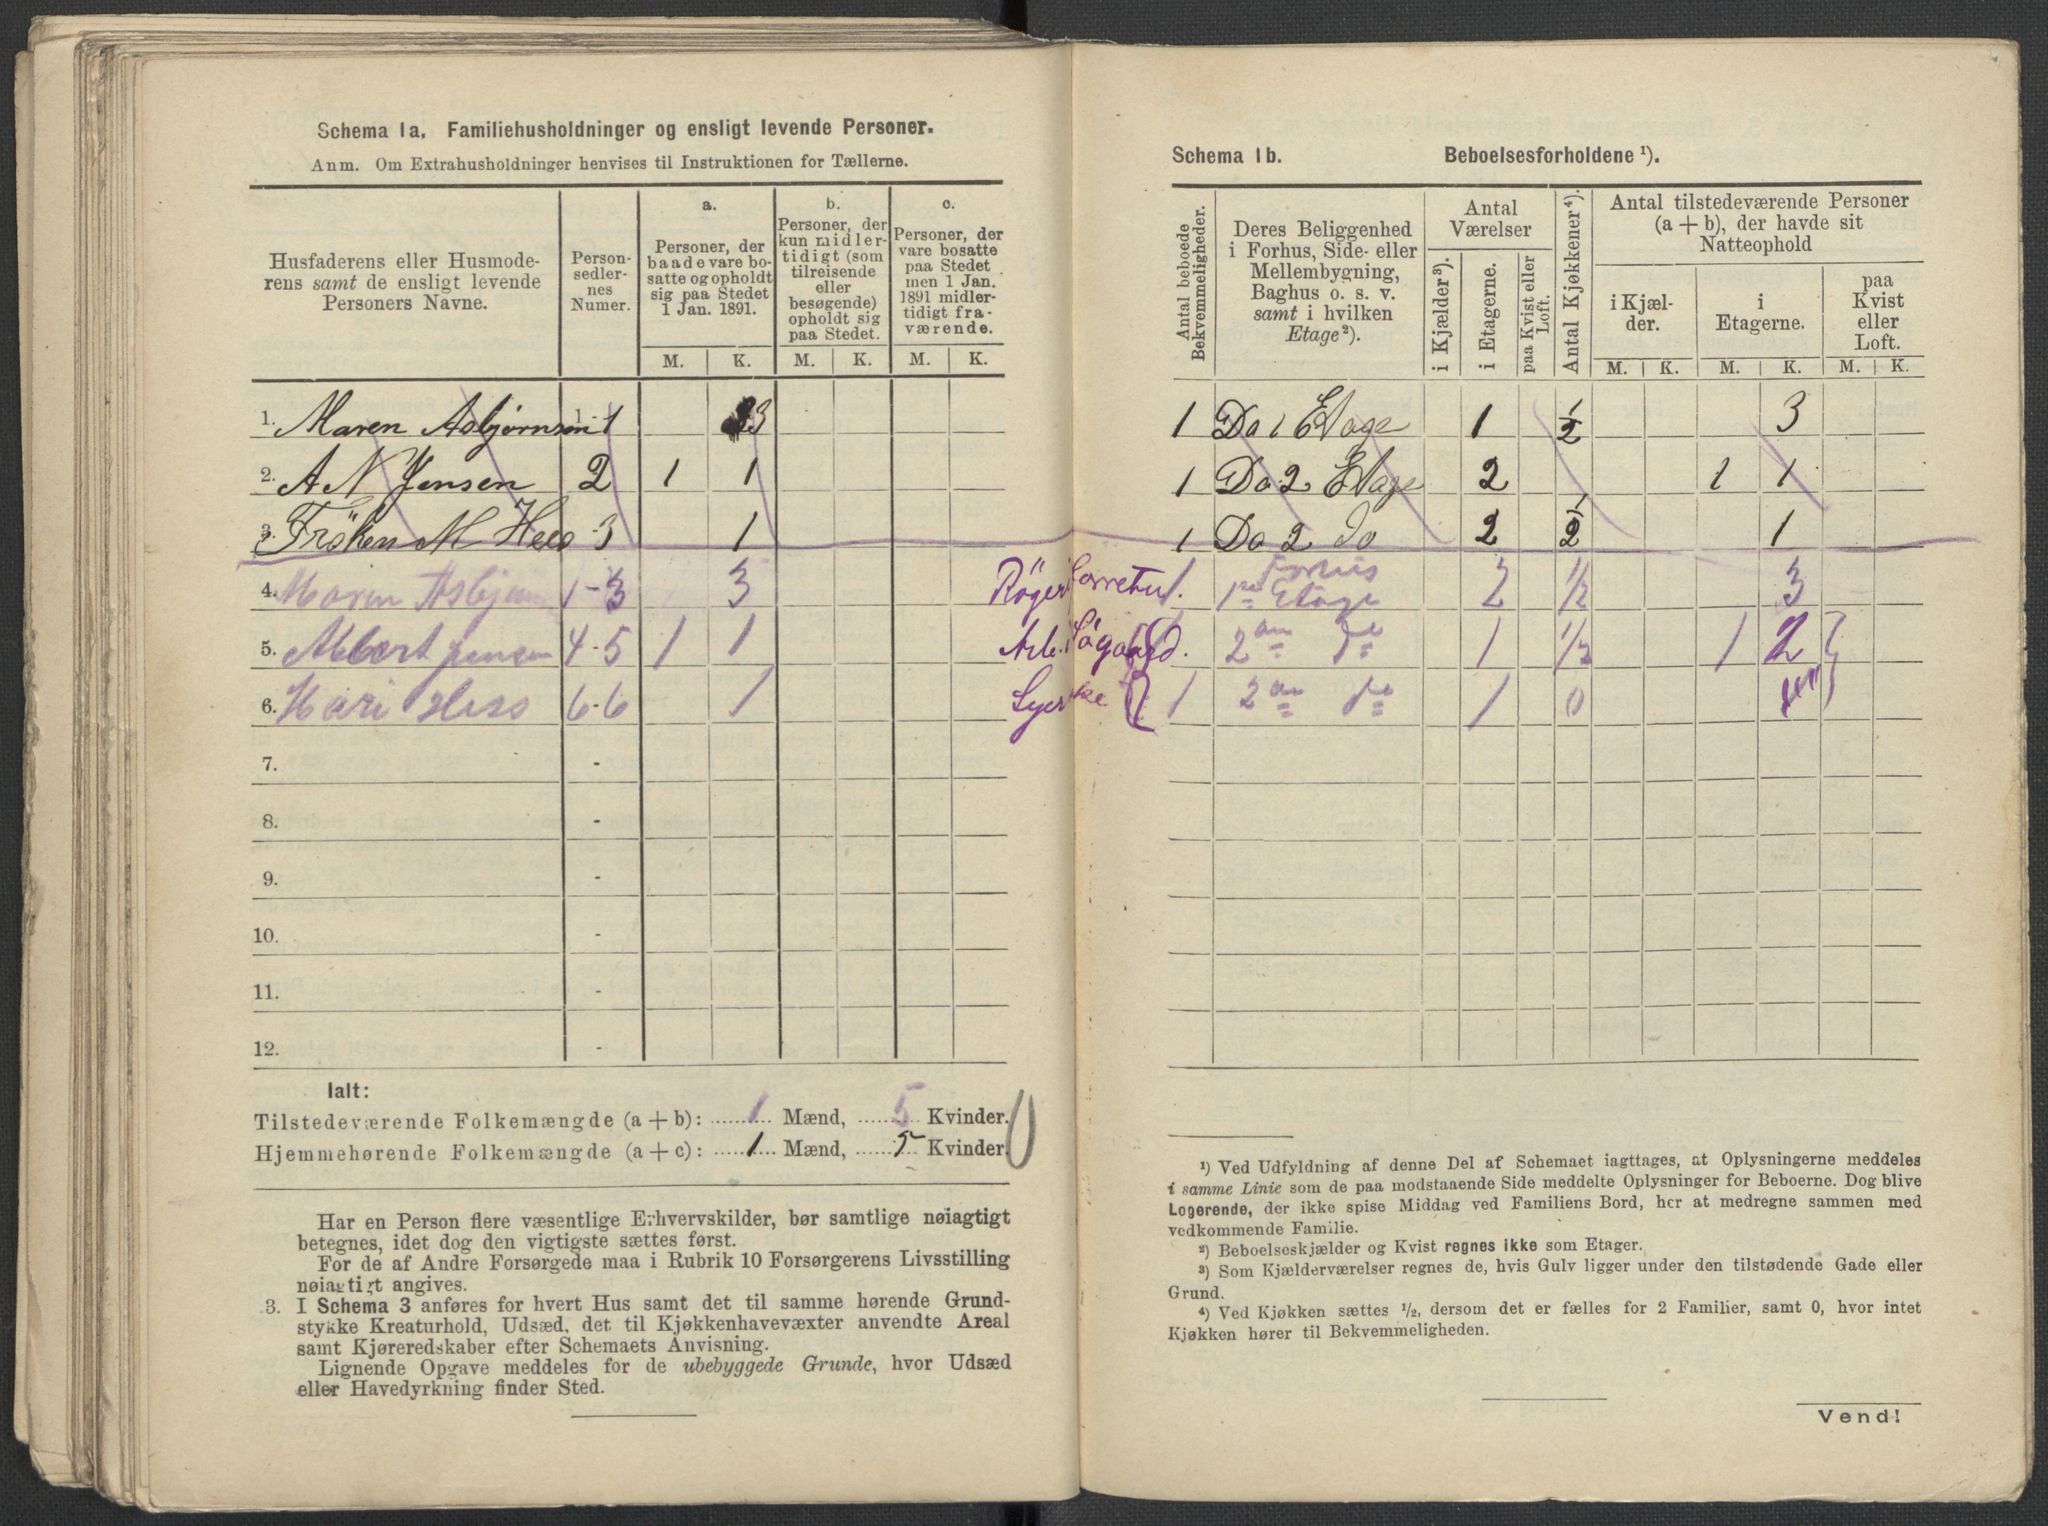 Schema 1a. Familiehusholdninger og ensligt levende Personer.
Anm. Om Extrahusholdninger henvises til Instruktionen for Tællerne.
Husfaderens eller Husmode-
rens samt de ensligt levende
Personers Navne.
Person-
sedler-
nes
Numer.
a.
Personer, der
baade vare bo-
satte og opholdt
sig paa Stedet
1 Jan. 1891.
b.
Personer, der
kun midler-
tidigt (som
tilreisende
eller
besøgende)
opholdt sig
paa Stedet.
c.
Personer, der
vare bosatte
paa Stedet
men 1 Jan.
1891 midler-
tidigt fra-
værende.
M. K. M. K. M. K.
1. Maren Asbjørnsen 1-1 3
2. A N Jensen 2 1 1
3. Fröken M Hess -3 1
4. Maren 1-3 3
5. Albert Jensen 4-5 1 1
6. Hess 6-6 1
7. -
8. -
9. -
10. -
11. -
12. -
Ialt:
Tilstedeværende Folkemængde (a + b): 1 Mænd, 5 Kvinder.
Hjemmehørende Folkemængde (a + c): 1 Mænd, 5 Kvinder.
Har en Person flere væsentlige Erhvervskilder, bør samtlige nøiagtigt
betegnes, idet dog den vigtigste sættes først.
For de af Andre Forsørgede maa i Rubrik 10 Forsørgerens Livsstilling
nøiagtigt angives.
3. I Schema 3 anføres for hvert Hus samt det til samme hørende Grund-
stykke Kreaturhold, Udsæd, det til Kjøkkenhavevæxter anvendte Areal
samt Kjøreredskaber efter Schemaets Anvisning.
Lignende Opgave meddeles for de ubebyggede Grunde, hvor Udsæd
eller Havedyrkning finder Sted.
Schema 1b. Beboelsesforholdene ¹).
Antal beboede
Bekvemmeligheder.
Deres Beliggenhed
i Forhus, Side- eller
Mellembygning,
Baghus o. s. v.
samt i hvilken
Etage²).
Antal
Værelser
i Kjælder³).
i Etagerne.
paa Kvist eller
Loft.
Antal Kjøkkener⁴).
Antal tilstedeværende Personer
(a + b), der havde sit
Natteophold
i Kjæl-
der.
i
Etagerne.
paa
Kvist
eller
Loft.
M. K. M. K. M. K.
1 Do 1 Etage 1 1/2 3
1 Do 2 Etage 2 1 1
1 Do 2 Do 2 1/2 1
1. Forhus
1ste Etage 2 1/2 3
2den Do 1 1/2 1 2
1 2den Do 1 0
¹) Ved Udfyldning af denne Del af Schemaet iagttages, at Oplysningerne meddeles
i samme Linie som de paa modstaaende Side meddelte Oplysninger for Beboerne. Dog blive
Logerende, der ikke spise Middag ved Familiens Bord, her at medregne sammen med
vedkommende Familie.
²) Beboelseskjælder og Kvist regnes ikke som Etager.
³) Som Kjælderværelser regnes de, hvis Gulv ligger under den tilstødende Gade eller
Grund.
⁴) Ved Kjøkken sættes ½, dersom det er fælles for 2 Familier, samt 0, hvor intet
Kjøkken hører til Bekvemmeligheden.
Vend!